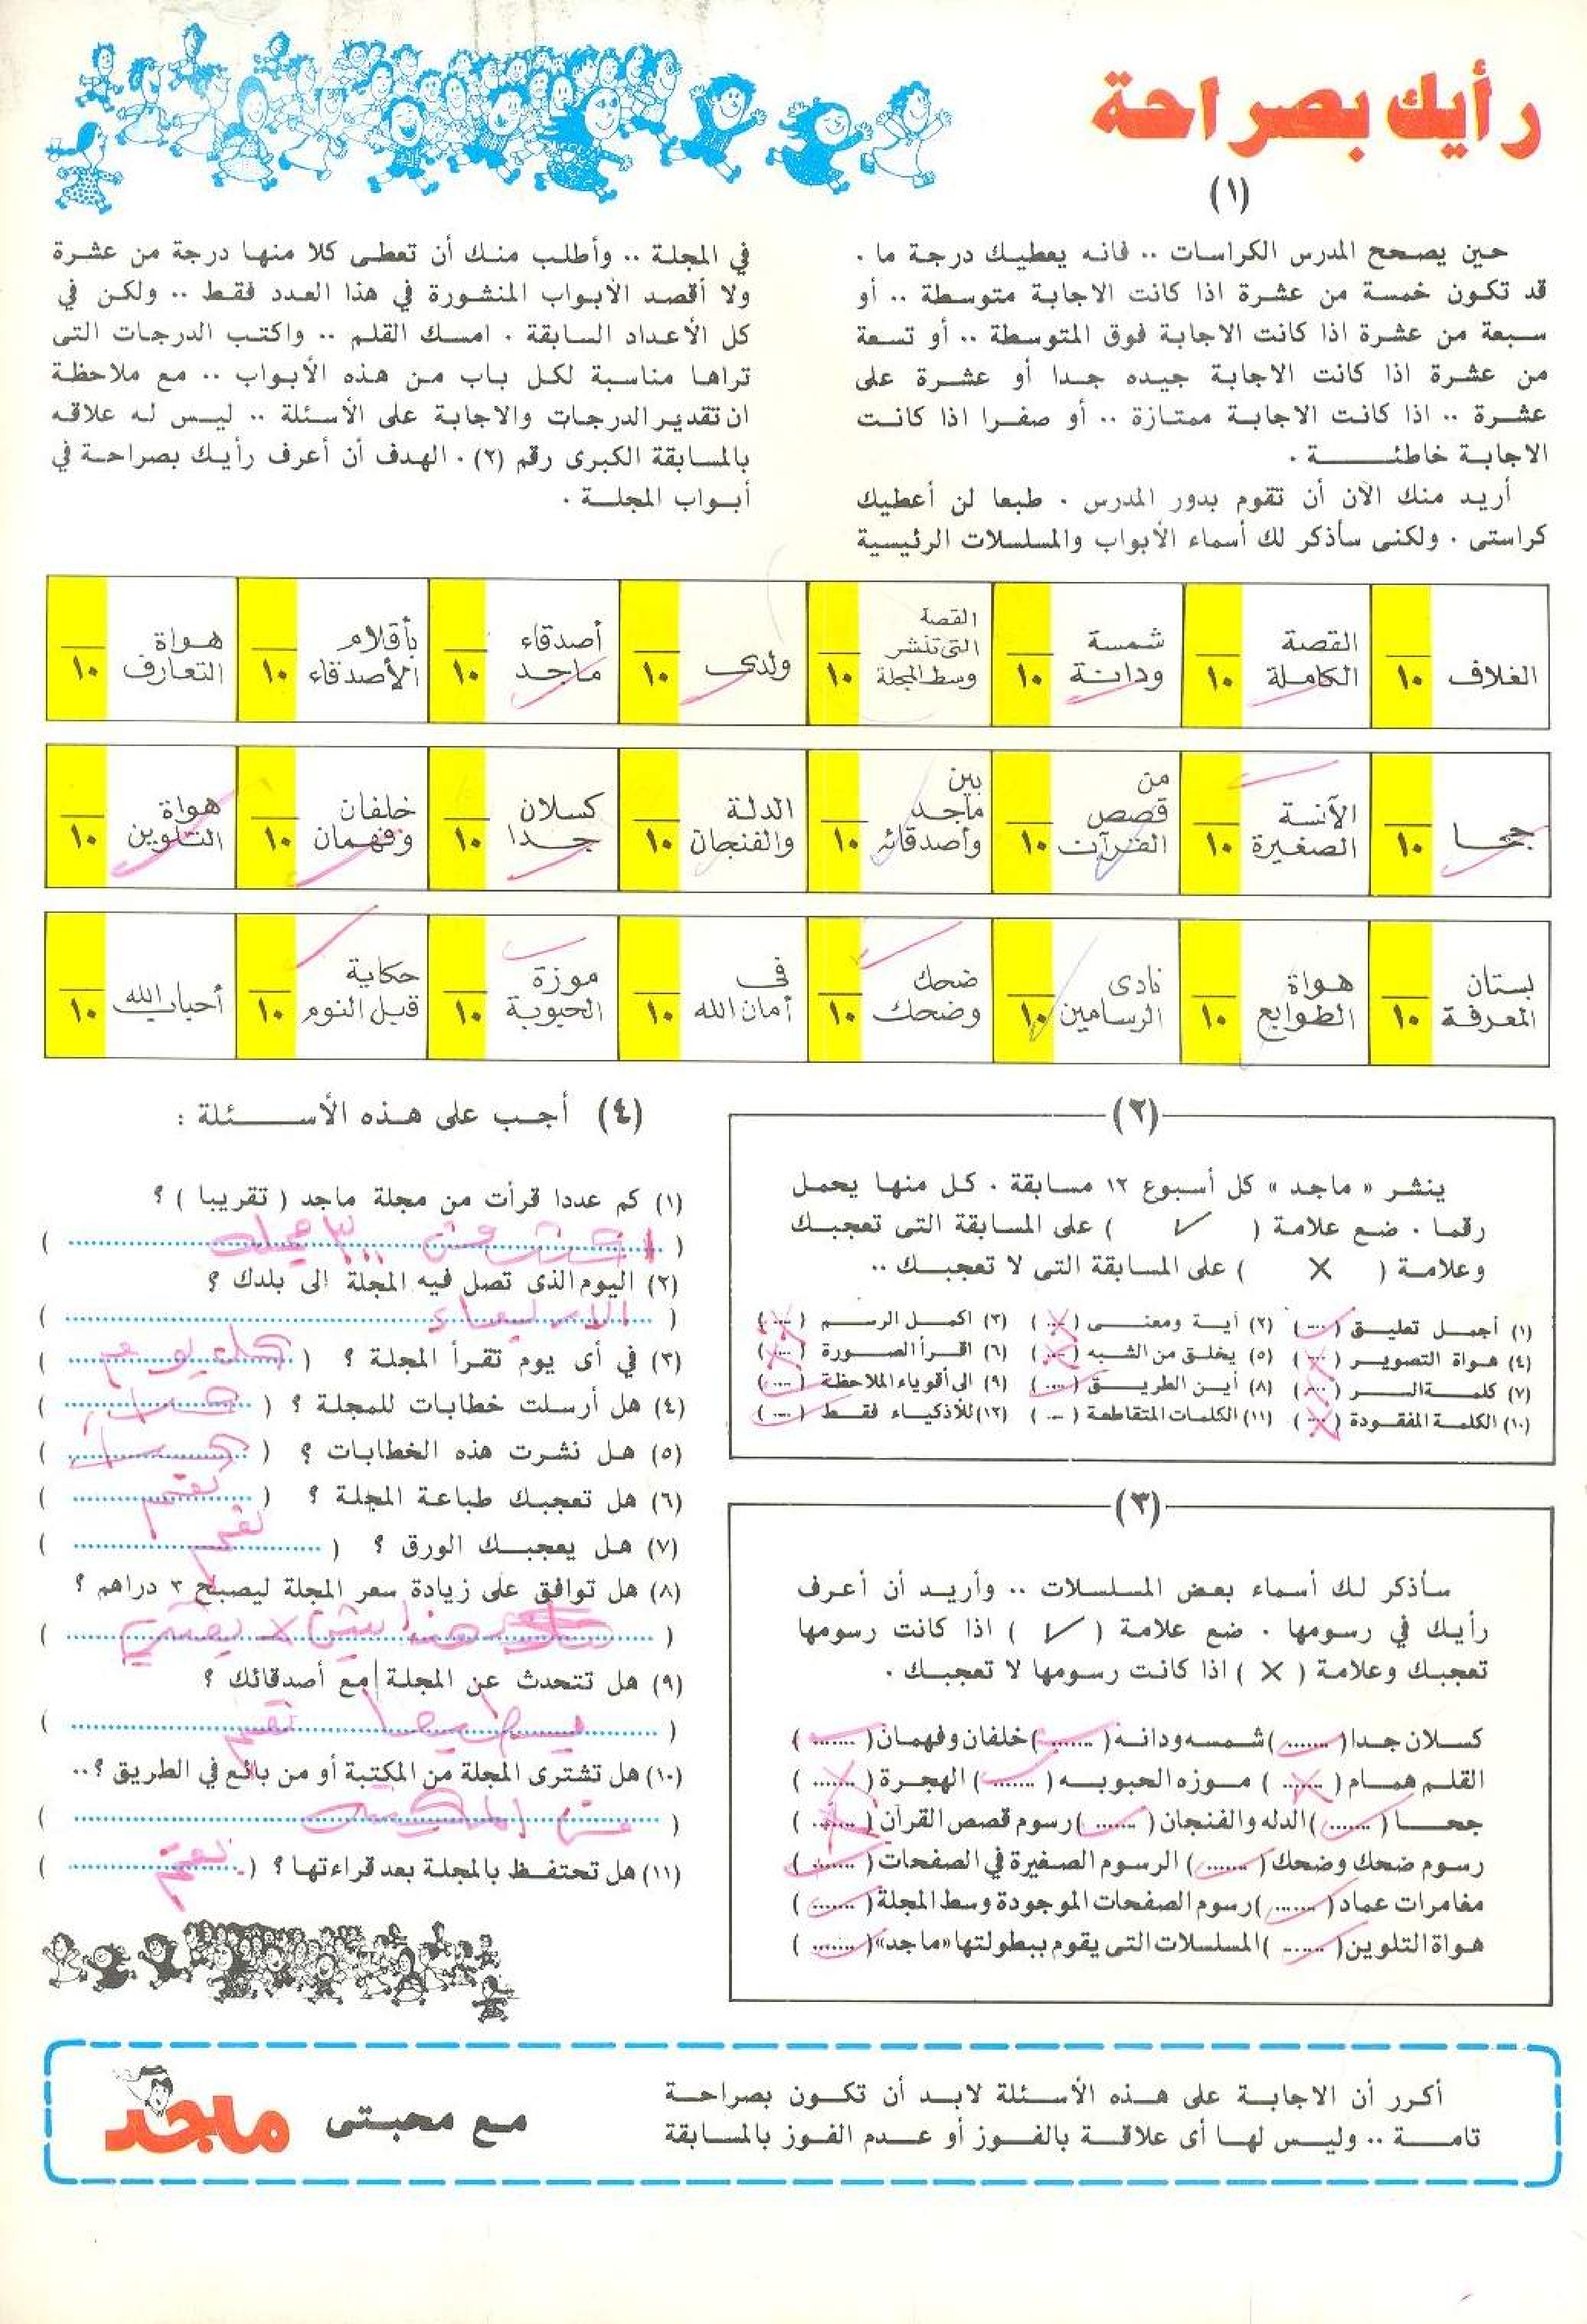 رأيك بصراحة
(١)
حين يصحح المدرس الكراسات .. فانه يعطيك درجة ما .
قد تكون خمسة من عشرة اذا كانت الاجابة متوسطة .. أو
سبعة من عشرة اذا كانت الاجابة فوق المتوسطة .. أو تسعة
من عشرة اذا كانت الاجابة جيده جدا أو عشرة على
عشرة .. اذا كانت الاجابة ممتازة .. أو صفرا اذا كانت
الاجابة خاطئة .
أريد منك الآن أن تقوم بدور المدرس . طبعا لن أعطيك
كراستى . ولكنى سأذكر لك أسماء الأبواب والمسلسلات الرئيسية
في المجلة .. وأطلب منك أن تعطى كلا منها درجة من عشرة
ولا أقصد الأبواب المنشورة في هذا العدد فقط .. ولكن في
كل الأعداد السابقة . امسك القلم .. واكتب الدرجات التى
تراها مناسبة لكل باب من هذه الأبواب .. مع ملاحظة
ان تقدير الدرجات والاجابة على الأسئلة .. ليس له علاقه
بالمسابقة الكبرى رقم (٢) . الهدف أن أعرف رأيك بصراحة في
أبواب المجلة .
الغلاف ١٠
القصة الكاملة ١٠
شمسة ودانة ١٠
القصة التى تنشر وسط المجلة ١٠
ولدى ١٠
أصدقاء ماجد ١٠
بأقلام الأصدقاء ١٠
هواة التعارف ١٠
جحا ١٠
الآنسة الصغيرة ١٠
من قصص القرآن ١٠
بين ماجد وأصدقائه ١٠
الدلة والفنجان ١٠
كسلان جدا ١٠
خلفان وفهمان ١٠
هواة التلوين ١٠
بستان المعرفة ١٠
هواة الطوابع ١٠
نادى الرسامين ١٠
ضحك وضحك ١٠
فى أمان الله ١٠
موزة الحبوبة ١٠
حكاية قبل النوم ١٠
أحباب الله ١٠
(٢)
ينشر « ماجد » كل أسبوع ١٢ مسابقة . كل منها يحمل
رقما . ضع علامة ( ✓ ) على المسابقة التى تعجبك
وعلامة ( × ) على المسابقة التى لا تعجبك ..
(١) أجمل تعليق (....) (٢) أية ومعنى (....) (٣) اكمل الرسم (....)
(٤) هواة التصوير (....) (٥) يخلق من الشبه (....) (٦) اقرأ الصورة (....)
(٧) كلمة السر (....) (٨) أين الطريق (....) (٩) الى أقوياء الملاحظة (....)
(١٠) الكلمة المفقودة (....) (١١) الكلمات المتقاطعة (....) (١٢) للأذكياء فقط (....)
(٣)
سأذكر لك أسماء بعض المسلسلات .. وأريد أن أعرف
رأيك في رسومها . ضع علامة ( ✓ ) اذا كانت رسومها
تعجبك وعلامة ( × ) اذا كانت رسومها لا تعجبك .
كسلان جدا (.......) شمسه ودانة (.......) خلفان وفهمان (.......)
القلم همام (.......) موزه الحبوبه (.......) الهجرة (.......)
جحا (.......) الدله والفنجان (.......) رسوم قصص القرآن (.......)
رسوم ضحك وضحك (.......) الرسوم الصغيرة في الصفحات (.......)
مغامرات عماد (.......) رسوم الصفحات الموجودة وسط المجلة (.......)
هواة التلوين (.......) المسلسلات التى يقوم ببطولتها «ماجد» (.......)
(٤) أجب على هذه الأسئلة :
(١) كم عددا قرأت من مجلة ماجد ( تقريبا ) ؟
(٢) اليوم الذى تصل فيه المجلة الى بلدك ؟
الاربعاء
(٣) في أى يوم تقرأ المجلة ؟ ( كل يوم )
(٤) هل أرسلت خطابات للمجلة ؟ ( )
(٥) هل نشرت هذه الخطابات ؟ ( )
(٦) هل تعجبك طباعة المجلة ؟ ( نعم )
(٧) هل يعجبك الورق ؟ ( نعم )
(٨) هل توافق على زيادة سعر المجلة ليصبح ٣ دراهم ؟
(٩) هل تتحدث عن المجلة مع أصدقائك ؟
نعم
(١٠) هل تشترى المجلة من المكتبة أو من بائع في الطريق ؟..
من المكتبه
(١١) هل تحتفظ بالمجلة بعد قراءتها ؟ ( نعم )
أكرر أن الاجابة على هذه الأسئلة لابد أن تكون بصراحة
تامة .. وليس لها أى علاقة بالفوز أو عدم الفوز بالمسابقة
مع محبتى ماجد